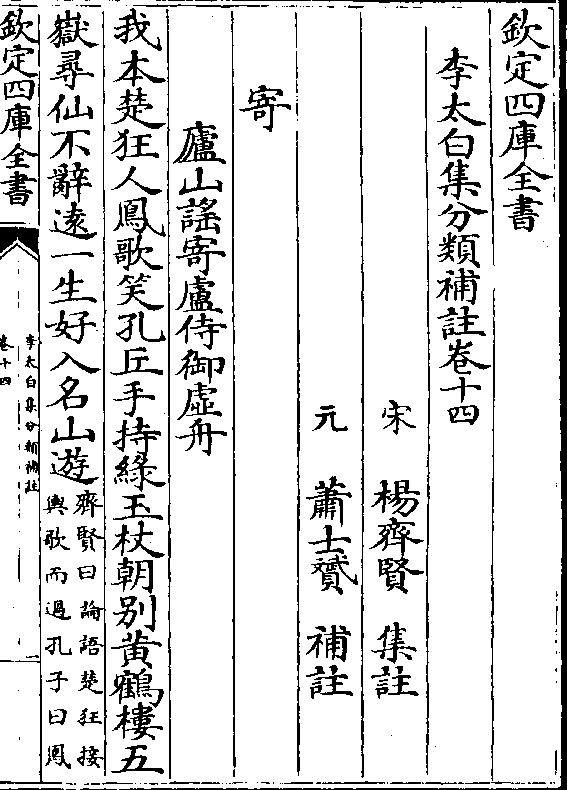 欽定四庫全書
李太白集分類補註卷十四
宋 楊齊賢 集註
元 蕭士贇 補註
寄
廬山謡寄盧侍御虛舟
我本楚狂人鳳歌笑孔丘手持緑玉杖朝别黄鶴樓五
嶽尋仙不辭逺一生好入名山遊
齊賢曰論語楚狂接
輿歌而過孔子曰鳳
欽定四庫全書
李太白集分類補註
卷十四
一